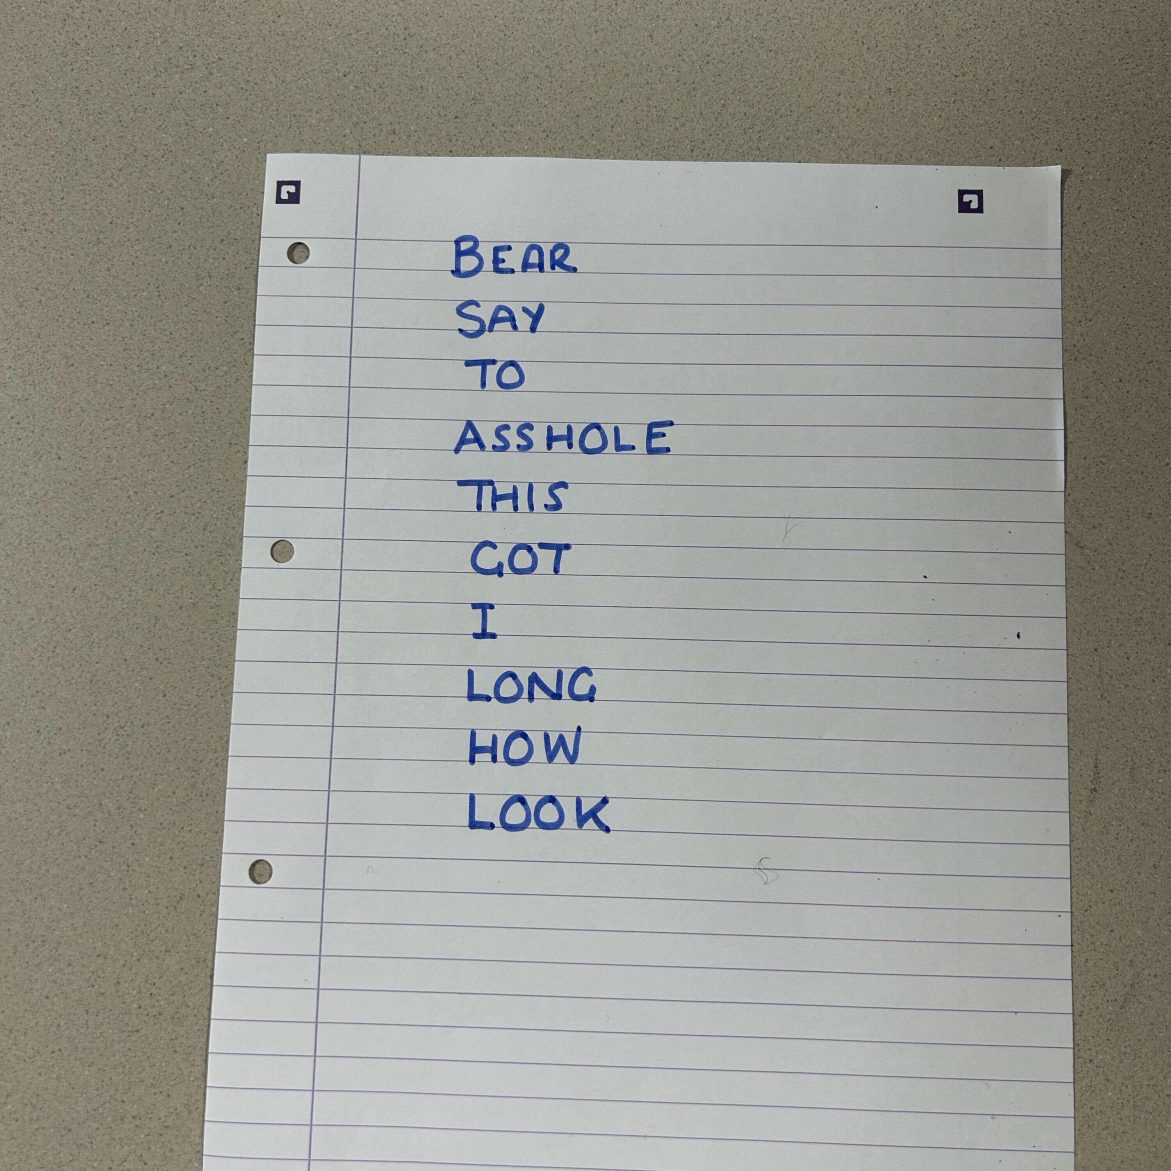 BEAR
SAY
TO
ASSHOLE
THIS
GOT
I
LONG
HOW
LOOK